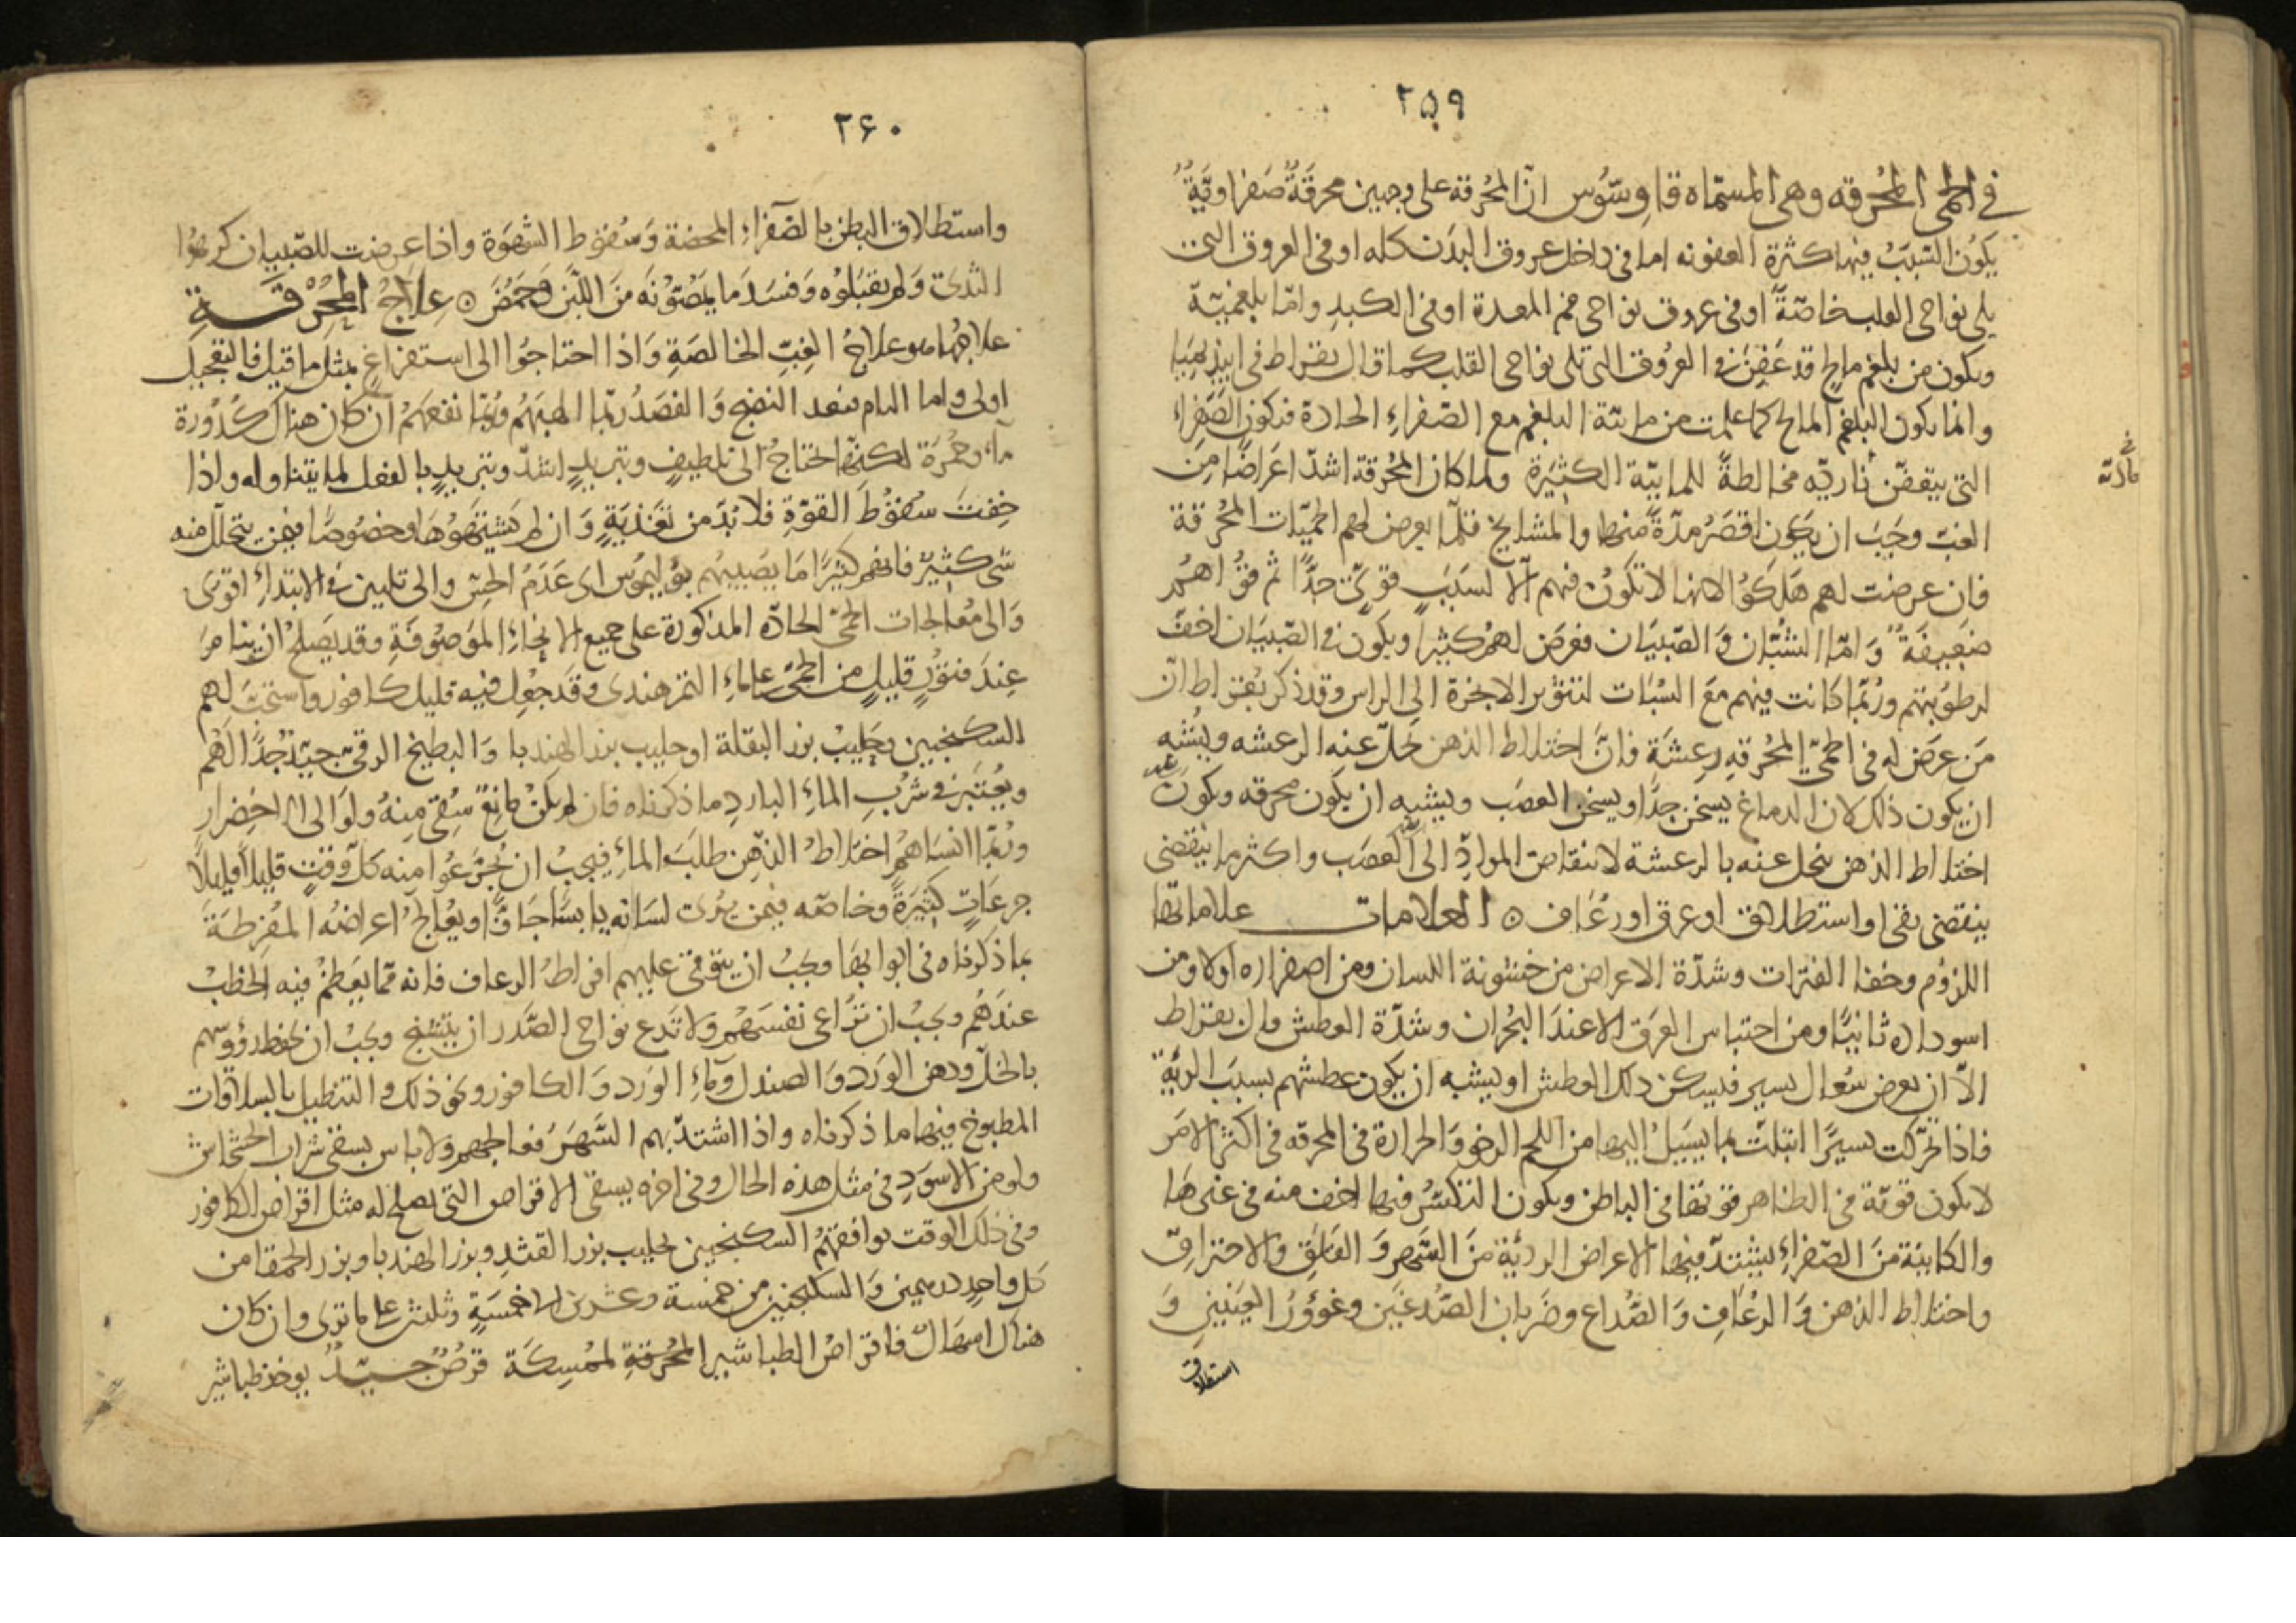 ٢٥٩
في الحمى المحرقه وهي المسماه قاوسوس ان المحرقه على وجهين محرقة صفراوية
يكون السبب فيها كثرة العفونه اما في داخل عروق البدن كله او في العروق التي
يلي نواحي القلب خاصة او في عروق نواحي فم المعدة او في الكبد واما بلغمية
ويكون من بلغم مالح قد عفن في العروق التي تلي نواحي القلب كما قال بقراط في ابيذيميا
وانما يكون البلغم المالح كما علمت من مائية البلغم مع الصفراء الحادة فتكون الصفراء
التي يتعفن ناريه مخالطة للمايية الكثيرة ولما كان المحرقة اشد اعراضا من
الغب وجب ان يكون اقصر مدة منها والمشايخ قلما يعرض لهم الحميات المحرقة
فان عرضت لهم هلكوا لانها لا تكون فيهم الا لسبب قوي جدا ثم قواهم
ضعيفة واما الشبان والصبيان فعرض لهم كثيرا ويكون في الصبيان اخف
لرطوبتهم وربما كانت فيهم مع السبات لتثوير الابخرة الى الراس وقد ذكر بقراط ان
من عرض له في الحمى المحرقه رعشة فان اختلاط الذهن يحل عنه الرعشه ويشبه
ان يكون ذلك لان الدماغ يسخن جدا ويسخن العصب ويشبه ان يكون محرقه ويكون
اختلاط الذهن ينحل عنه بالرعشة لانتقاض المواد الى العصب واكثر ما ينقضي
ينقضي بقئ او استطلاق او عرق او رعاف ۞ العلامات علاماتها
اللزوم وخفا الفترات وشدة الاعراض من خشونة اللسان ومن اصفراره اولا ومن
اسوداده ثانيا ومن احتباس العرق الا عند البحران وشدة العطش قال بقراط
الا ان يعرض سعال يسير فيسكن ذلك العطش او يشبه ان يكون عطشهم بسبب الرية
فاذا تحركت يسيرا ابتلت بما يسيل اليها من اللحم الرخو والحرارة في المحرقه في اكثر الامر
لا يكون قوية في الظاهر قوتها في الباطن ويكون التكسر فيها اخف منه في غيرها
والكاينة من الصفراء يشتد فيها الاعراض الردية من السهر والقلق والاحتراق
واختلاط الذهن والرعاف والصداع وضربان الصدغين وغوؤر العينين و
استطلاق
٢۶٠
واستطلاق البطن بالصفراء المحضة وسقوط الشهوة واذا عرضت للصبيان كرهوا
الثدي ولم يقبلوه وفسد ما يمصونه من اللبن وحمض ۞ علاج المحرقة
علاجها هو علاج الغب الخالصة واذا احتاجوا الى استفراغ بمثل ما قيل فالتعجيل
اولى واما التام فبعد النضج والفصد ربما الهبهم وربما نفعهم ان كان هناك كدورة
ماء وحمرة لكنها تحتاج الى تلطيف وتبريد اشد وتبريد بالفعل لما يتناوله واذا
خفت سقوط القوة فلا بد من تغذية وان لم يشتهوها وخصوصا فيمن يتحلل منه
شي كثير فانهم كثيرا ما يصيبهم بوليموس اى عدم الحس والى تليين في الابتداء اقوى
والى معالجات الحمى الحادة المذكورة على جميع الانحاء الموصوفة وقد يصلح ان يتامر
عند فتور قليل من الحمى على ماء التمر هندي وقد جعل فيه قليل كافور واستحب لهم
السكنجبين بحليب بزر البقلة او حليب بزر الهندبا والبطيخ الرقي جيد جدا لهم
ويعتبر في شرب الماء البارد ما ذكرناه فان لم يكن مانع سقي منه ولو الى الاخضرار
وربما انساهم اختلاط الذهن طلب الماء فيجب ان يجرعوا منه كل وقت قليلا قليلا
جرعات كثيرة وخاصه فيمن يرى لسانه يابسا جافا ويعالج اعراضه المفرطة
بما ذكرناه في ابوابها ويجب ان يتوقى عليهم افراط الرعاف فانه مما يعظم فيه الخطب
عندهم ويجب ان تراعي نفسهم ولا تدع نواحي الصدر ان يتشنج ويجب ان يحفظ رؤوسهم
بالخل ودهن الورد والصندل وماء الورد والكافور ونحو ذلك والتنطيل بالسلاقات
المطبوخ فيها ما ذكرناه واذا اشتد بهم السهر فعالجهم ولا باس بسقي شراب الخشخاش
ولو من الاسود في مثل هذه الحال وفي اخره يسقى الاقراص التي يصلح له مثل اقراص الكافور
وفي ذلك الوقت يوافقهم السكنجبين بحليب بزر القثد وبزر الهندبا وبزر الحمقا من
كل واحد درهمين والسكنجبين من خمسة وعشرين الى خمسة وثلثين على ما ترى وان كان
هناك اسهال فاقراص الطباشير المحرقة لممسكة قرص جيد يوخذ طباشير